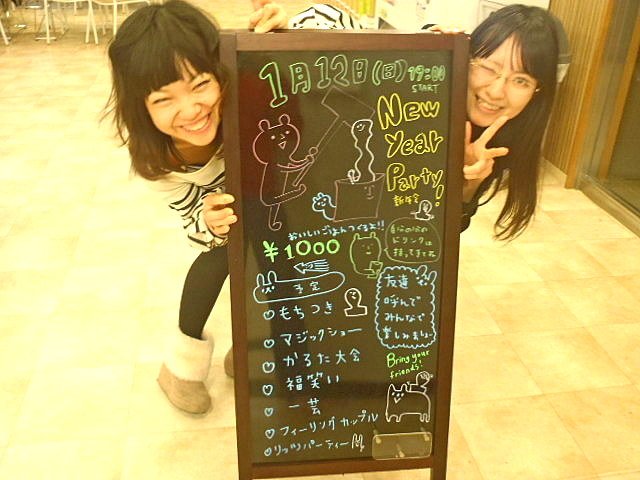 1月12日(日) 19:00
START
New
Year
Party!
新年会
おいしいごはんつくるよ!!
¥1000
自分の分の
ドリンクは
持ってきてね
予定
もちつき
マジックショー
かるた大会
福笑い
一芸
フィーリングカップル
リッツパーティー
友達
呼んで
みんなで
楽しみましょー
Bring your
friends!